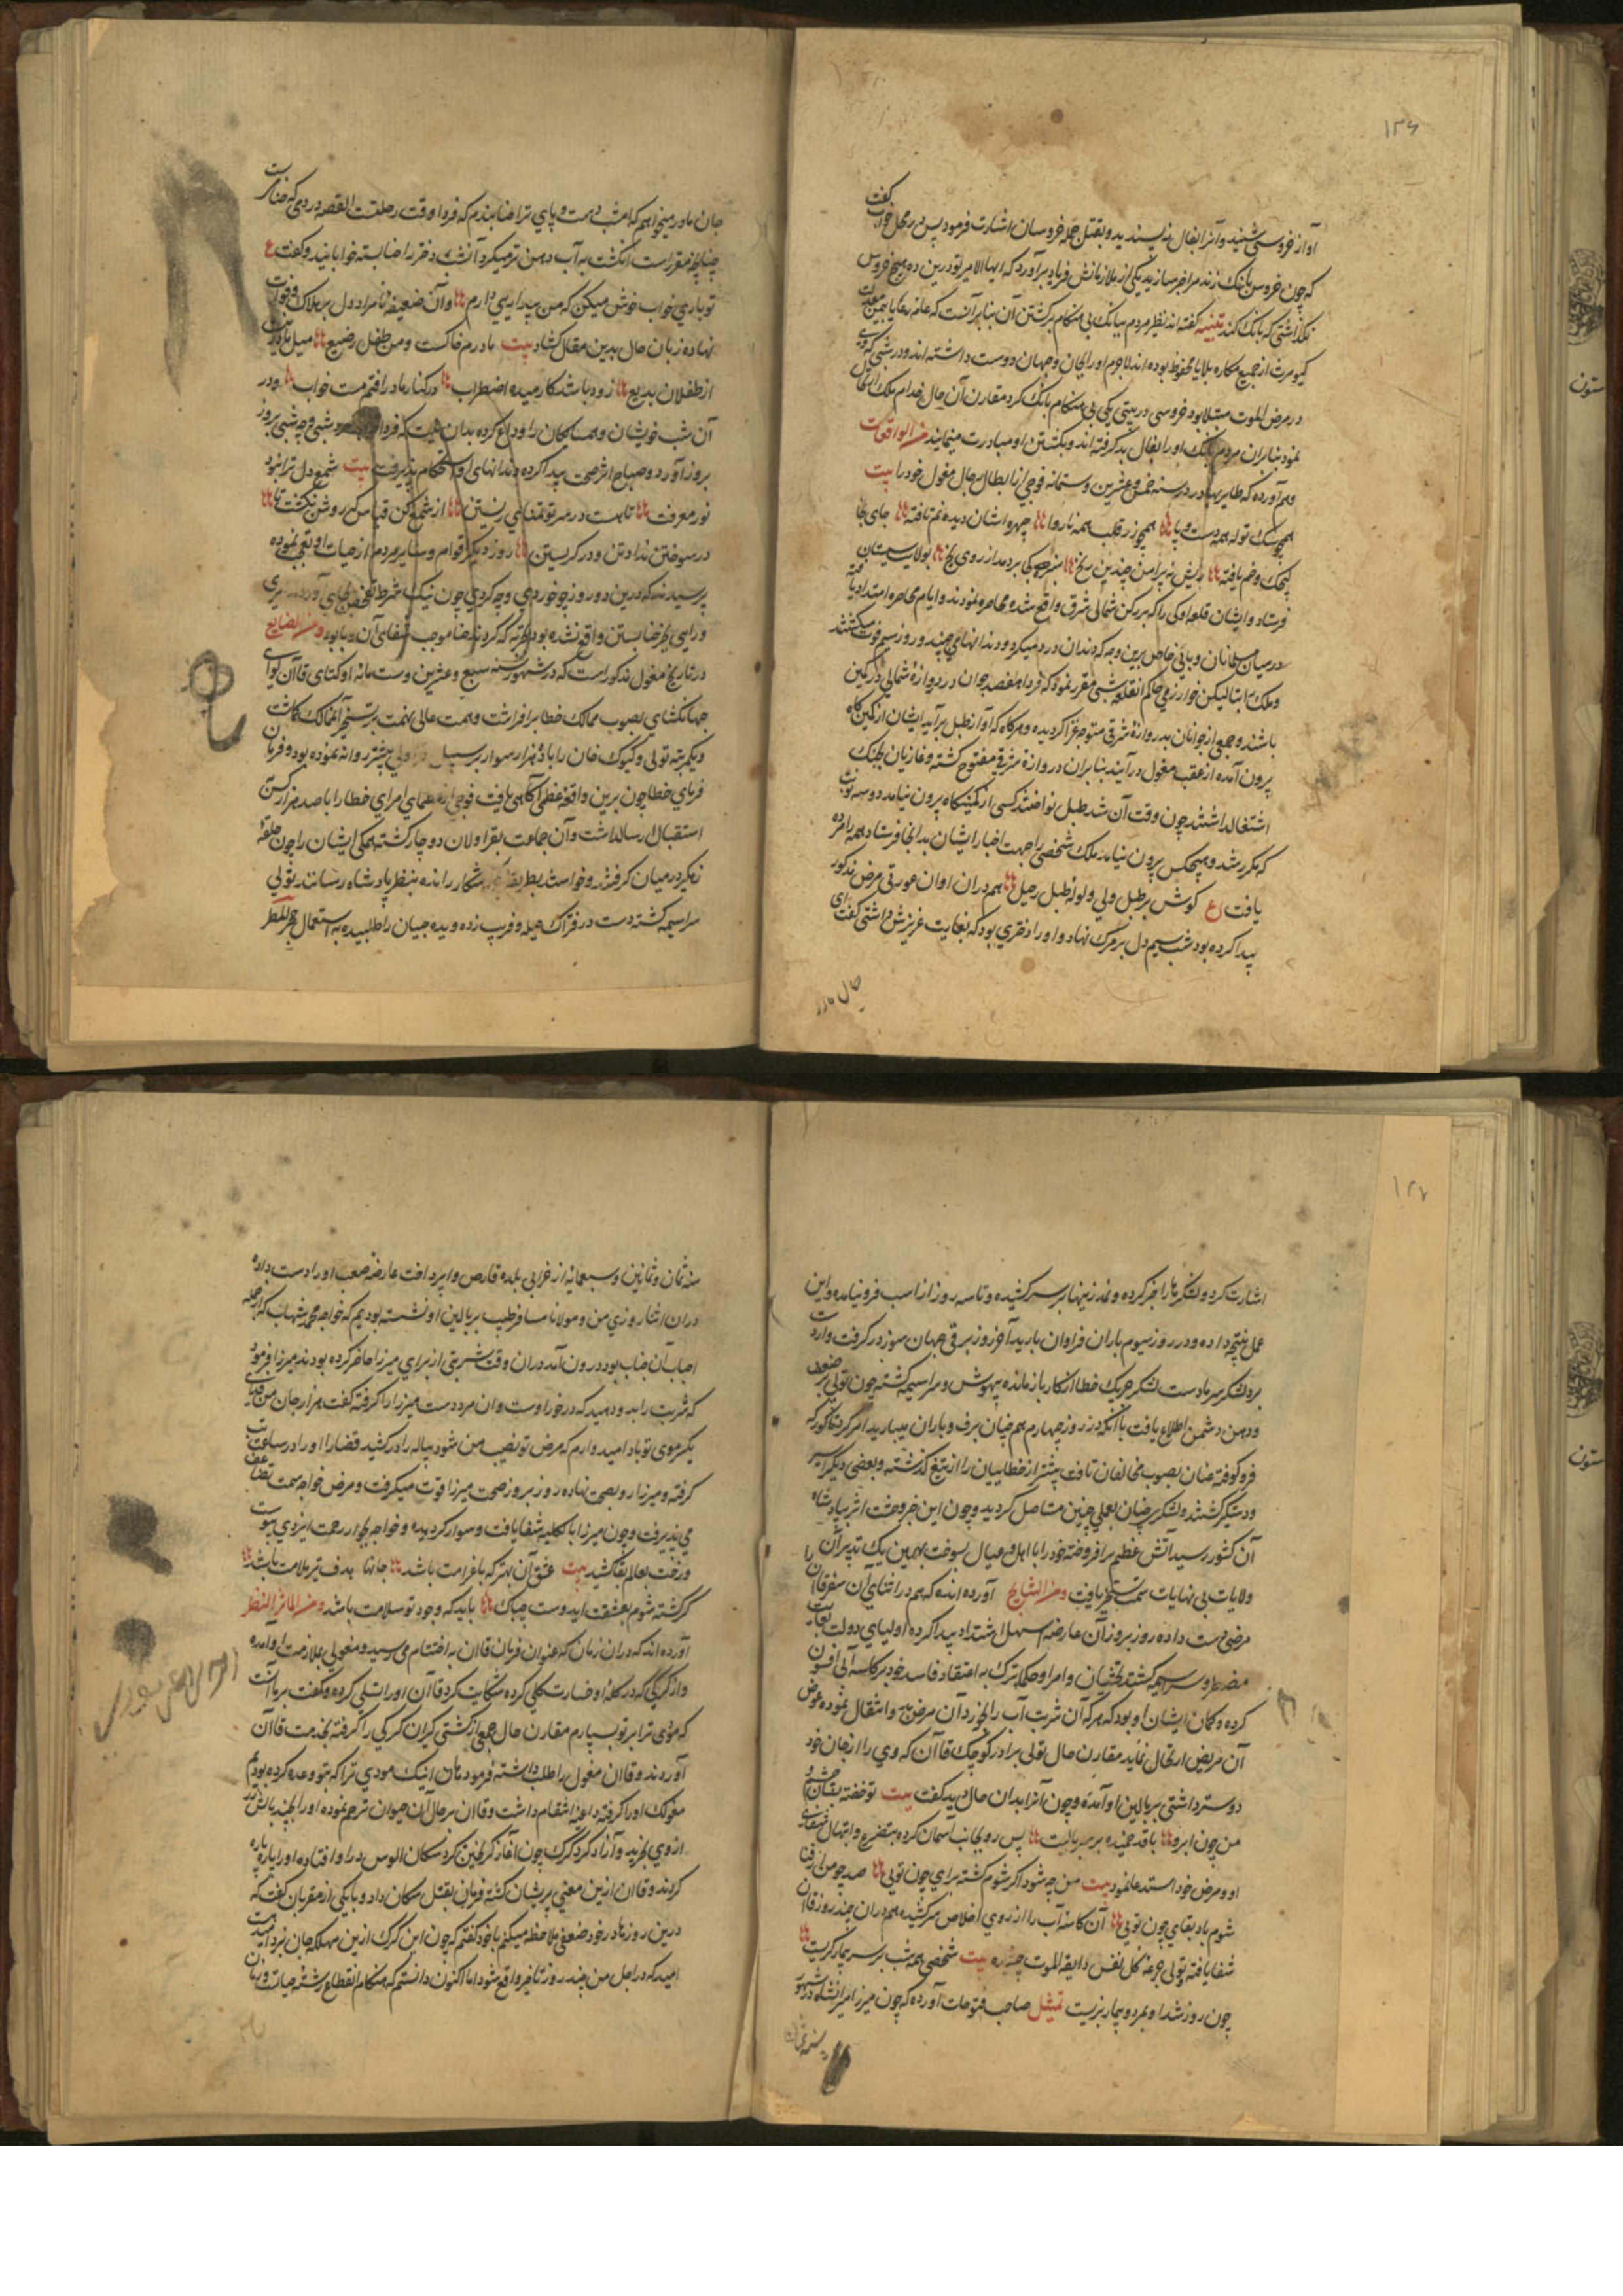 ۱۳۶
آواز خروسی شنید و آنرا بفال نپسندید و بقتل جمله خروسان اشارت فرمود پس در محل خواب گفت
که چون خروس بانک زند مرا خبر سازید یکی از ملازمانش فریاد برآورد که ایها الامیر تو درین ده هیچ خروس
نگذاشتی که بانک کند تنبیه گفته اند تطیر مردم ببانک بی هنگام بنا بر آنست که عامه رعایا
کیومرث از جمیع مکاره بلایا محفوظ بوده اند لاجرم او را بجان و جهان دوست داشته اند و در شبی که وی
در مرض الموت مبتلا بود خروسی در بیتی بی هنگام بانک کرد مقارن آن حال خدام ملک انتقال
نمود بنابران مردم بانک او را بفال بد گرفته اند و بکشتن او مبادرت مینمایند من الواقعات
وهم آورده که طایر بهادر در سنه خمس و عشرین و ستمائه فوجی از ابطال رجال مغول خود را بیت
همچو سک توله همه دست و پا همچو زر قلب همه ناروا چهره ایشان دیده نم نافته جای بجا
کنجک و خم یافته ریش نه پیرامن چندین زنخ سبزه کی بردمد از روی یخ بولایت سیستان
فرستاد و ایشان قلعه اوک را که بر رکن شمالی شرق واقع شده محاصره نمودند و ایام محاصره امتداد یافته
در میان مسلمانان وبائی حاصل برین وجه که دندان درد میکرد و دندانها می جنبید و روز سیم فوت میکشتند
وملک خوارزمی حاکم آن قلعه شبی مقرر نمود که فردا هفصد جوان در دروازه شمالی در کمین
باشند و جمعی از جوانان بدروازه شرقی متوجه غزا کردیده و هرکاه که آواز طبل برآید ایشان از کمین کاه
بیرون آمده از عقب مغول درآیند بنابران دروازه شرقی مفتوح کشته و غازیان بجنک
اشتغال داشتند چون وقت آن شد طبل نواختند کسی از کمینکاه بیرون نیامد دو سه نوبت
که مکرر شد و هیچکس بیرون نیامد ملک شخصی را جهت اخبار ایشان بدانجا فرستاد همه را مرده
یافت ع کوش بر طبل ولی و لوله طبل رحیل هم دران اوان عورتی مرض مذکور
پیدا کرده بود شب سیم دل بر مرک نهاد و او را دختری بود که بغایت عزیزش داشتی گفت ای
جان مادر
جان مادر میخواهم که امشب دست و پای ترا حنا بندم که فردا وقت رحلتست القصه در دمی که حنا بست
چنانچه مقررست انکشت به آب دهن تر میکرد آنشب دختر را حنا بسته خوابانید و گفت ع
تو باری خواب خوش میکن که من بیداریی دارم وآن ضعیفه نامراد دل بر هلاک و فوات
نهاده زبان حال بدین مقال کشاد بیت مادرم خاکست و من طفل رضیع میل مادر نیست
از طفلان بدیع زود باشد کارمیده اضطراب در کنار مادر افتم مست خواب ودر
آن شب خویشان و همسایکان را وداع کرده بدان نیت که فردا شبی و چه شبی بروز
بروز آورد و صباح اثر صحت پیدا کرده دندانهای او استحکام پذیرفت بیت شمع دل ترا نبود
نور معرفت تا هست در سر تو تمنای زیستن از شمع کن قیاس که روشن نکشت تا
در سوختن نداد تن و در کریستن روز دیکر اقوام و سایر مردم از حیات او تعجب نموده
پرسیدند که درین دو روز چه خوردی و چه کردی چون نیک شرط تفحص بجای آوردند امری
ورای بحر حنا بستن واقع نشده بود تجربه که کردند حنا موجب شفای آن وبا بود ومن البدایع
در تاریخ مغول مذکور است که در شهور سنه سبع و عشرین و ستمائه اوکتای قاآن لوای
جهانکشای بصوب ممالک خطا برافراشت و همت عالی نهمت بر تسخیر آن ممالک کماشت
ویکمرتبه تولی و کیوک خان را با ده هزار سوار بر سبیل پیشتر روانه نموده بود و فرمان
فرمای خطا چون برین واقعه عظمی آکاهی یافت فوجی از عظمای امرای خطا را با صد هزار کس
استقبال ارسال داشت و آن جماعت بقراولان دوچار کشته همکی ایشان را چون حلقه
زهکیر در میان کرفتند و خواستند بطریقه شکار رانده بنظر پادشاه رسانند تولی
سراسیمه کشته دست در فتراک حیله و فریب زده و یده جیان را طلبیده به استعمال حجر المطر
۱۳۷
اشارت کرد و لشکرها را خبر کرده و نمد زینها بر سر کشیده و تا سه روز از اسب فرو نیامده و این
عمل نتیجه داده و در روز سیوم باران فراوان بارید آخر روز برقی جهان سوز در کرفت وارت
برد لشکر سرما دست لشکر چریک خطا از کار باز مانده بیهوش و سراسیمه کشته چون تولی بر ضعف
ووهن دشمن اطلاع یافت با آنکه در روز چهارم هم چنان برف و باران میبارید امر کرد تا کورکه
فرو کوفته عنان بصوب مخالفان تافت بیشتر از خطاییان را از تیغ کذشته و بعضی دیکر اسیر
ودستکیر کشتند و لشکر چنان بعملی چنین مستاصل کردید و چون این خبر وحشت اثر بپادشاه
آن کشور رسید آتش عظیم برافروخته خود را با اهل و عیال بسوخت بهمین یک تدبیر آن
ولایات بی نهایات سمت تسخیر یافت ومن النتایج آورده اند که هم در اثنای آن سفر قاآن را
مرضی دست داده روز بروز آن عارضه اسهل اشتداد پیدا کرده اولیای دولت بغایت
مضطر و سراسیمه کشتند بخشیان و امرا و حکما ترک به اعتقاد فاسد خود بر کاسه آبی افسون
کرده و کمان ایشان او بود که هر که آن شربت آب را بخورد آن مرض به وانتقال نموده عوض
آن مریض ارتحال نماید مقارن حال تولی برادر کوچک قاآن که وی را از جان خود
دوستر داشتی ببالین او آمده و چون آنرا بدان حال دید کفت بیت تو خفته بقسان چشم و
من چون ابرو با قد خمیده بر سر بالینت پس روی بجانب آسمان کرده بتضرع و ابتهال شفای
او و مرض خود استدعا نمود بیت من چه شود اکر شوم کشته برای چون تویی صد چو من ار فنا
شوم باد بقای چون تویی آن کاسه آب را از روی اخلاص سرکشیده هم دران چند روز قاآن
شفا یافته و تولی جرعه کل نفس ذایقة الموت چشیده بیت شخصی همه شب بر سر بیمار کریست
چون روز شد او بمرد و بیمار بزیست تمثیل صاحب فتوحات آورده که چون میرزا امیرانشاه در شهور
سنه ثمان
سنه ثمان و ثمانین و سبعمایه از خرابی بلده قارص وا پرداخت عارضه صعب او را دست داده
دران اثنا روزی من و مولانا مسافر طبیب بر بالین او نشسته بودیم که خواجه محمد شهاب که از جمله
احباب آن جناب بود درون آمد دران وقت شربتی از برای میرزا حاضر کرده بودند میرزا فرمود
که شربت را بدو دهید که در خور اوست وآن مرد دست میرزا را کرفته کفت هزار جان من فدای
یکموی تو باد امیدوارم که مرض تو نصیب من شود پیاله را در کشید قضا را او را در ساعت تب
کرفته و میرزا رو بصحت نهاده روز بروز صحت میرزا قوت میکرفت و مرض خواجه سمت تضاعف
می پذیرفت و چون میرزا بالکلیه شفا یافت و سوار کردیده و خواجه بجوار رحمت ایزدی پیوست
ورخت بعالم بقا کشید بیت عشق آن بهتر که با غرامت باشد جانها هدف تیر ملامت باشد
کر کشته شوم بعشقت ایدوست چه باک باید که وجود تو سلامت باشد ومن المآثر النظر
آورده اند که دران زمان که عنوان فرمان قاآن به اختتام می رسید و مغولی بملازمت او آمده
واز کرکی که در کله او خسارت کلی کرده شکایت کرد قاآن او را تسلی کرده و کفت بر ماآنست
که موذی ترا بر تو بسپارم مقارن حال جمعی از کشتی کیران کرکی را کرفته بخدمت قاآن
آوردند و قاآن مغول را طلب داشته فرمود هان اینک موذی ترا که بتو وعده کرده بودم
مغولک او را کرفته داعیه انتقام داشت و قاآن بر حال آن حیوان ترحم نموده او را بچند بالش زر
از وی بخرید و آزاد کرد کرک چون آغاز کریختن کرد سکان الوس در او افتاده او را پاره پاره
کردند و قاآن ازین معنی پریشان کشته فرمان بقتل سکان داد و با یکی از مقربان کفت که
درین روزها در خود ضعفی ملاحظه میکنم با خود کفتم که چون این کرک ازین مهلکه جان برد امیدست
امید که در اجل من چند روز تاخیر واقع شود اما اکنون دانستم که هنکام انقطاع رشته حیات و زمان
ستون
ستون